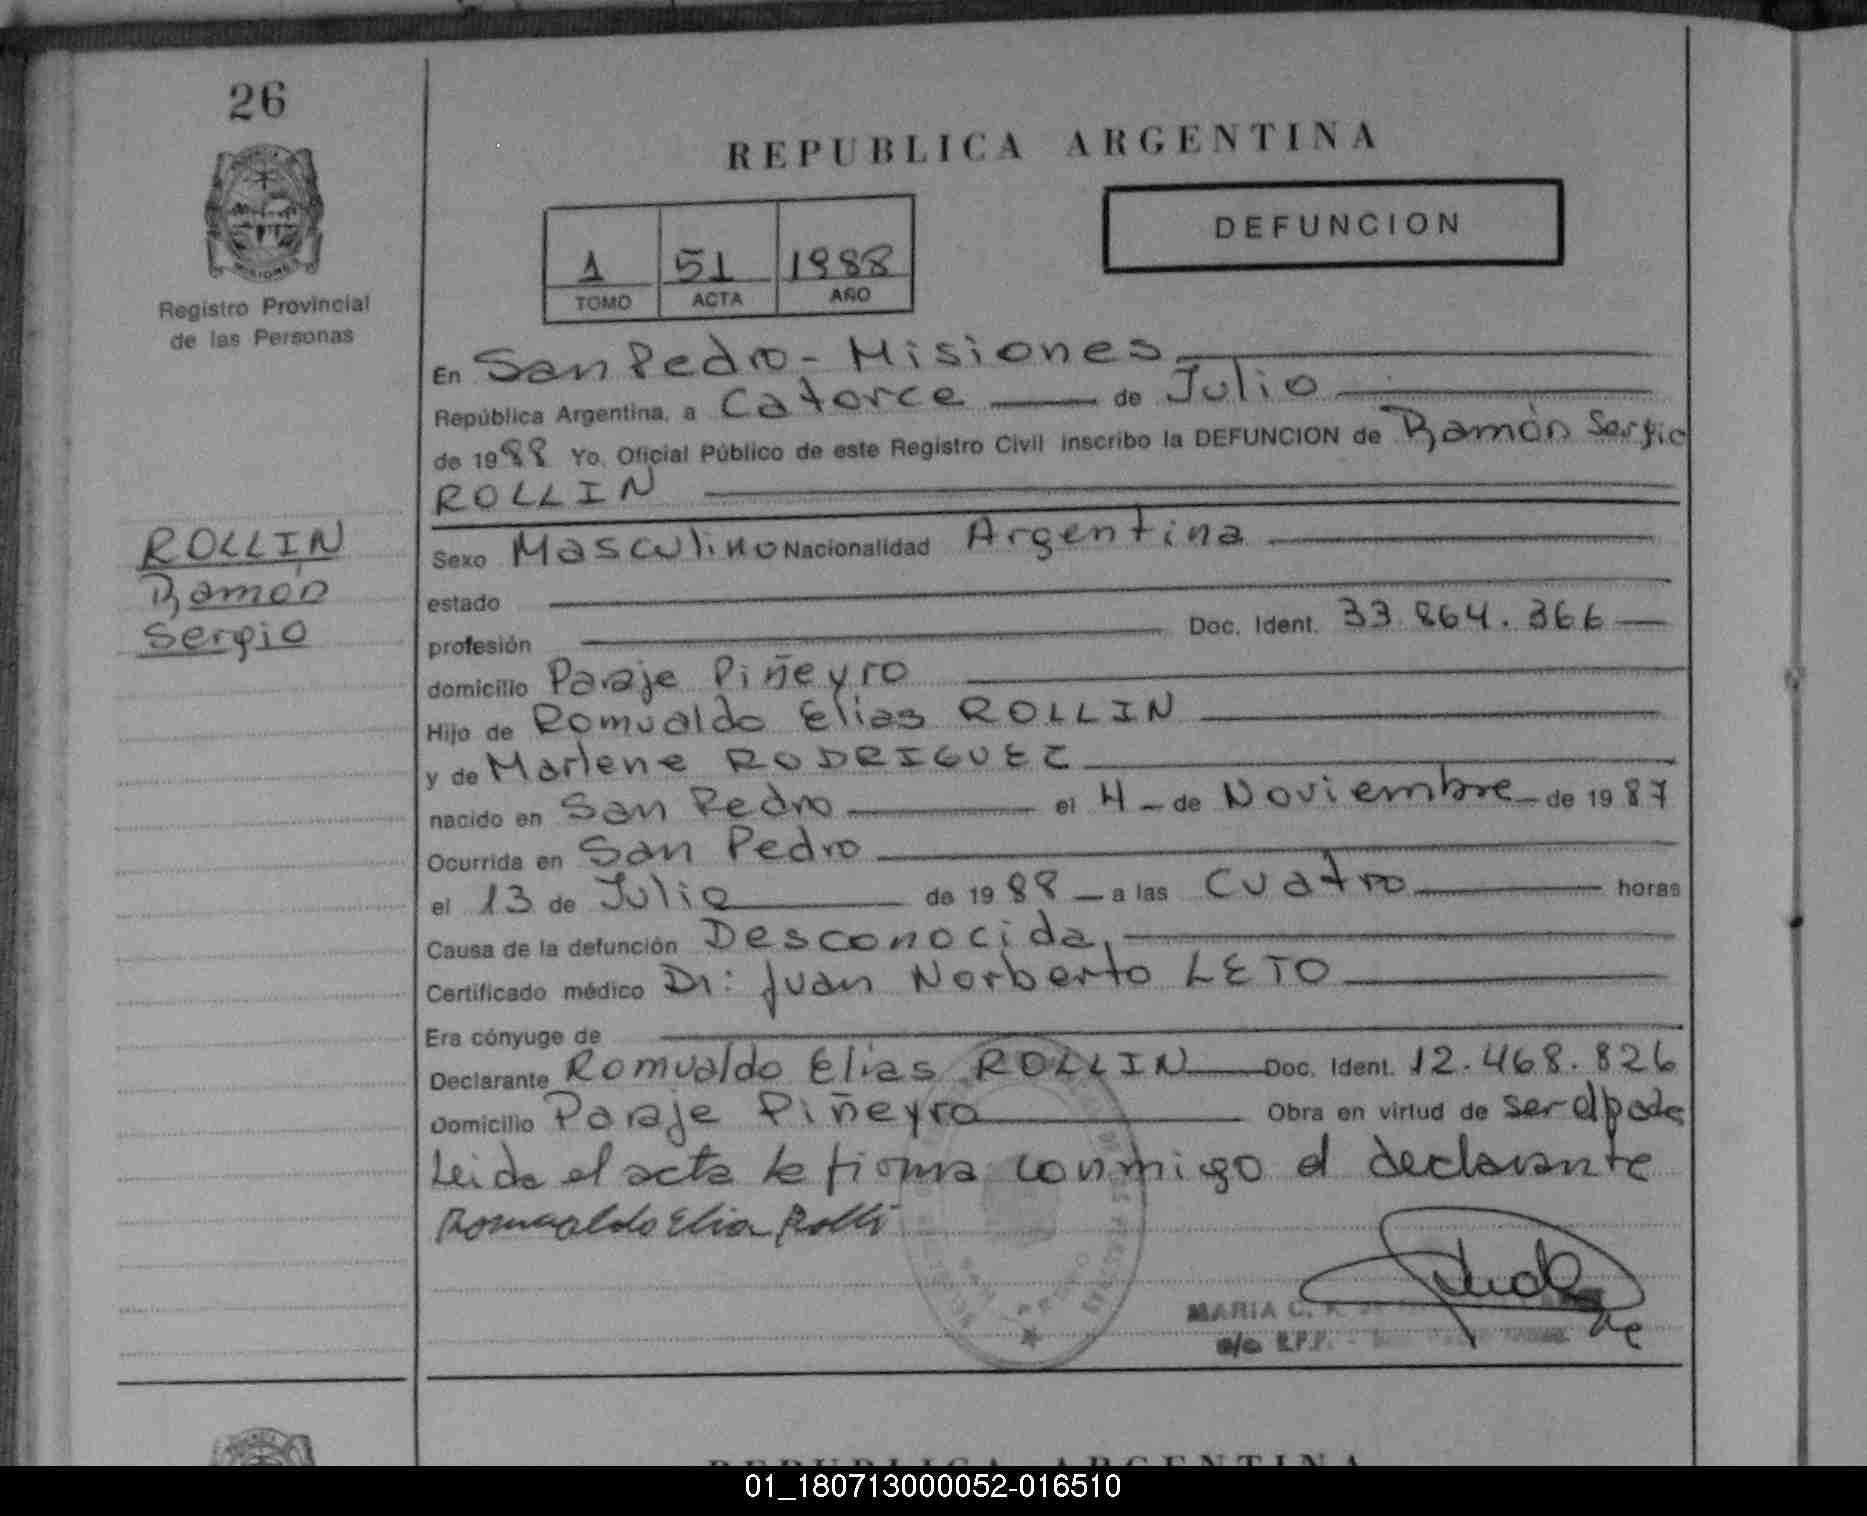 26
REPUBLICA ARGENTINA
DEFUNCION
1 51 1988
TOMO ACTA AÑO
Registro Provincial
de las Personas
En San Pedro - Misiones
República Argentina, a Catorce de Julio
de 1988 Yo, Oficial Público de este Registro Civil inscribo la DEFUNCION de Ramón Sergio
ROLLIN
ROLLIN
Ramón
Sergio
Sexo Masculino Nacionalidad Argentina
estado
profesión Doc. Ident. 33.864.366
domicilio Paraje Piñeyro
Hijo de Romualdo Elias ROLLIN
y de Marlene RODRIGUEZ
nacido en San Pedro el 4 de Noviembre de 1987
Ocurrida en San Pedro
el 13 de Julio de 1988 a las Cuatro horas
Causa de la defunción Desconocida,
Certificado médico Dr: Juan Norberto LETO
Era cónyuge de
Declarante Romualdo Elias ROLLIN Doc. Ident. 12.468.826
Domicilio Paraje Piñeyro Obra en virtud de ser el padre
Leida el acta la firma conmigo el declarante
Romualdo Elia Rolli
SAN PEDRO
MARIA C.
a/c R.P.P. -
REPUBLICA ARGENTINA
01_180713000052-016510